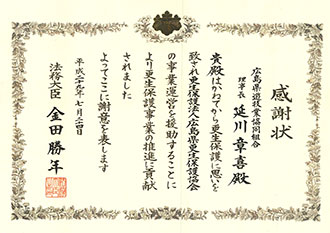 感謝状
広島県遊技業協同組合
理事長 延川章喜殿
貴殿はかねてから更生保護に思いを
致され更生保護法人広島県更生保護協会
の事業運営を援助することに
より更生保護事業の推進に貢献
されました
よってここに謝意を表します
平成二十九年七月二十四日
法務大臣 金田勝年